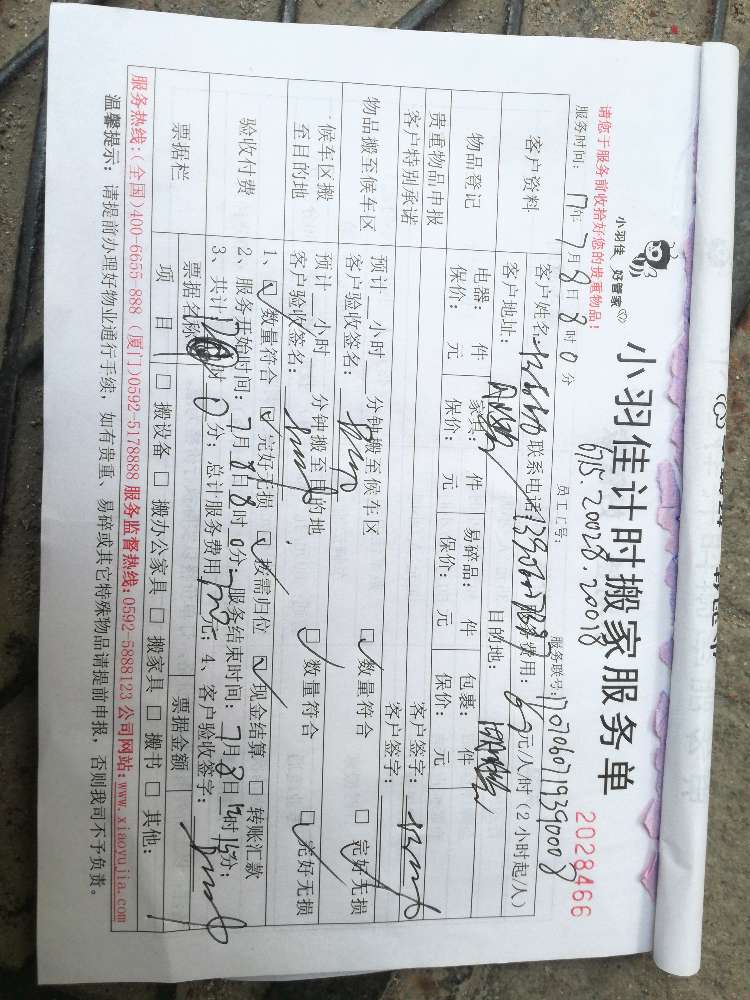 小羽佳 好管家
小羽佳计时搬家服务单
2028466
请您于服务前收拾好您的贵重物品!
员工工号: 615.20028.20018
服务联号:
服务时间: 17年 7月 8日 8时 0分
客户资料
客户姓名: 联系电话: 服务费用: 60元/人/时(2小时起/人)
客户地址: 目的地:
物品登记
电器: 件 家具: 件 易碎品: 件 包裹: 件
保价: 元 保价: 元 保价: 元 保价: 元
贵重物品申报 客户签字:
客户特别承诺 客户签字:
物品搬至候车区
预计 小时 分钟搬至候车区
客户验收签名:
☑ 数量符合 ☑ 完好无损
候车区搬至目的地
预计 小时 分钟搬至目的地
客户验收签名:
☑ 数量符合 ☑ 完好无损
验收付费
1、☑ 数量符合 ☑ 完好无损 ☑ 按需归位 ☑ 现金结算 □ 转账汇款
2、服务开始时间: 7月8日8时0分; 服务结束时间: 7月8日12时15分;
3、共计 时0分; 总计服务费用 元; 4、客户验收签字:
票据栏
票据名称 票据金额
项目 □ 搬设备 □ 搬办公家具 □ 搬家具 □ 搬书 □ 其他:
服务热线:(全国)400-6655-888 (厦门)0592-5178888 服务监督热线:0592-5888123 公司网站:www.xiaoyujia.com
温馨提示: 请提前办理好物业通行手续, 如有贵重、易碎或其它特殊物品请提前申报, 否则我司不予负责。